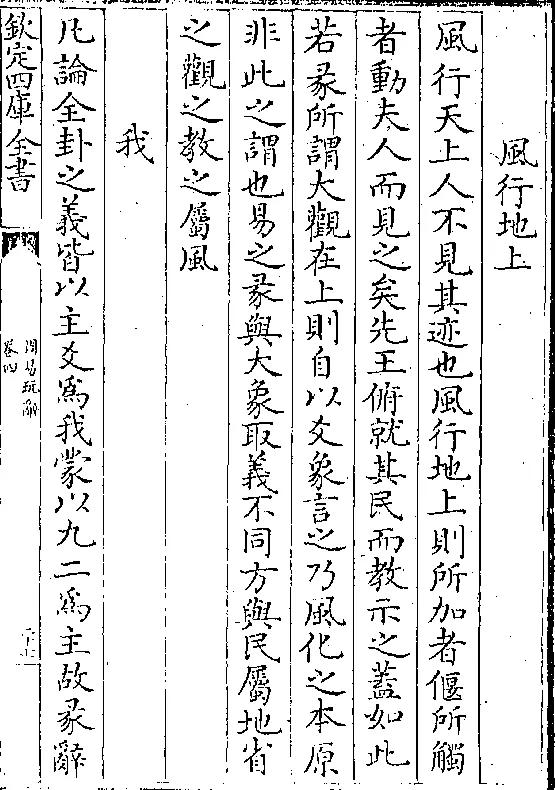 風行地上
風行天上人不見其迹也風行地上則所加者偃所觸
者動夫人而見之矣先王俯就其民而教示之蓋如此
若彖所謂大觀在上則自以爻象言之乃風化之本原
非此之謂也易之彖與大象取義不同方與民屬地省
之觀之教之屬風
我
凡論全卦之義皆以主爻為我蒙以九二為主故彖辭
欽定四庫全書
周易玩辭
卷四